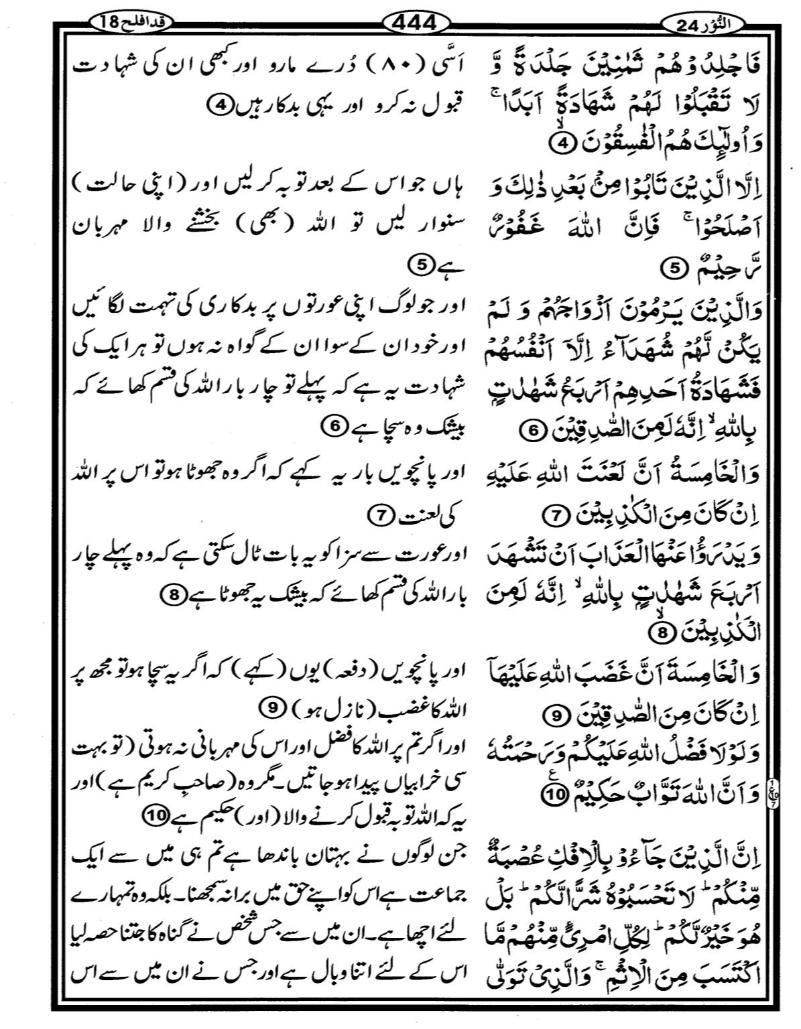 النُّوْر 24
444
قد افلح 18
فَاجْلِدُوْهُمْ ثَمٰنِيْنَ جَلْدَةً وَّ
لَا تَقْبَلُوْا لَهُمْ شَهَادَةً اَبَدًا ۚ
وَاُولٰٓئِكَ هُمُ الْفٰسِقُوْنَ ۙ ④
اِلَّا الَّذِيْنَ تَابُوْا مِنْۢ بَعْدِ ذٰلِكَ وَ
اَصْلَحُوْا ۚ فَاِنَّ اللّٰهَ غَفُوْرٌ
رَّحِيْمٌ ⑤
وَالَّذِيْنَ يَرْمُوْنَ اَزْوَاجَهُمْ وَ لَمْ
يَكُنْ لَّهُمْ شُهَدَآءُ اِلَّاۤ اَنْفُسُهُمْ
فَشَهَادَةُ اَحَدِهِمْ اَرْبَعُ شَهٰدٰتٍۭ
بِاللّٰهِ ۙ اِنَّهٗ لَمِنَ الصّٰدِقِيْنَ ⑥
وَالْخَامِسَةُ اَنَّ لَعْنَتَ اللّٰهِ عَلَيْهِ
اِنْ كَانَ مِنَ الْكٰذِبِيْنَ ⑦
وَيَدْرَؤُا عَنْهَا الْعَذَابَ اَنْ تَشْهَدَ
اَرْبَعَ شَهٰدٰتٍۭ بِاللّٰهِ ۙ اِنَّهٗ لَمِنَ
الْكٰذِبِيْنَ ۙ ⑧
وَالْخَامِسَةَ اَنَّ غَضَبَ اللّٰهِ عَلَيْهَاۤ
اِنْ كَانَ مِنَ الصّٰدِقِيْنَ ⑨
وَلَوْلَا فَضْلُ اللّٰهِ عَلَيْكُمْ وَرَحْمَتُهٗ
وَاَنَّ اللّٰهَ تَوَّابٌ حَكِيْمٌ ⑩ ع
اِنَّ الَّذِيْنَ جَآءُوْ بِالْاِفْكِ عُصْبَةٌ
مِّنْكُمْ ؕ لَا تَحْسَبُوْهُ شَرًّا لَّكُمْ ؕ بَلْ
هُوَ خَيْرٌ لَّكُمْ ؕ لِكُلِّ امْرِئٍ مِّنْهُمْ مَّا
اكْتَسَبَ مِنَ الْاِثْمِ ۚ وَالَّذِيْ تَوَلّٰى
اسّی (۸۰) دُرے مارو اور کبھی ان کی شہادت
قبول نہ کرو اور یہی بدکار ہیں ④
ہاں جو اس کے بعد توبہ کر لیں اور (اپنی حالت)
سنوار لیں تو اللہ (بھی) بخشنے والا مہربان
ہے ⑤
اور جو لوگ اپنی عورتوں پر بدکاری کی تہمت لگائیں
اور خود ان کے سوا ان کے گواہ نہ ہوں تو ہر ایک کی
شہادت یہ ہے کہ پہلے تو چار بار اللہ کی قسم کھائے کہ
بیشک وہ سچا ہے ⑥
اور پانچویں بار یہ کہے کہ اگر وہ جھوٹا ہو تو اس پر اللہ
کی لعنت ⑦
اور عورت سے سزا کو یہ بات ٹال سکتی ہے کہ وہ پہلے چار
بار اللہ کی قسم کھائے کہ بیشک یہ جھوٹا ہے ⑧
اور پانچویں (دفعہ) یوں (کہے) کہ اگر یہ سچا ہو تو مجھ پر
اللہ کا غضب (نازل ہو) ⑨
اور اگر تم پر اللہ کا فضل اور اس کی مہربانی نہ ہوتی (تو بہت
سی خرابیاں پیدا ہو جاتیں۔ مگر وہ (صاحب کریم ہے) اور
یہ کہ اللہ توبہ قبول کرنے والا (اور) حکیم ہے ⑩
جن لوگوں نے بہتان باندھا ہے تم ہی میں سے ایک
جماعت ہے اس کو اپنے حق میں برا نہ سمجھنا۔ بلکہ وہ تمہارے
لئے اچھا ہے۔ ان میں سے جس شخص نے گناہ کا جتنا حصہ لیا
اس کے لئے اتنا وبال ہے اور جس نے ان میں سے اس